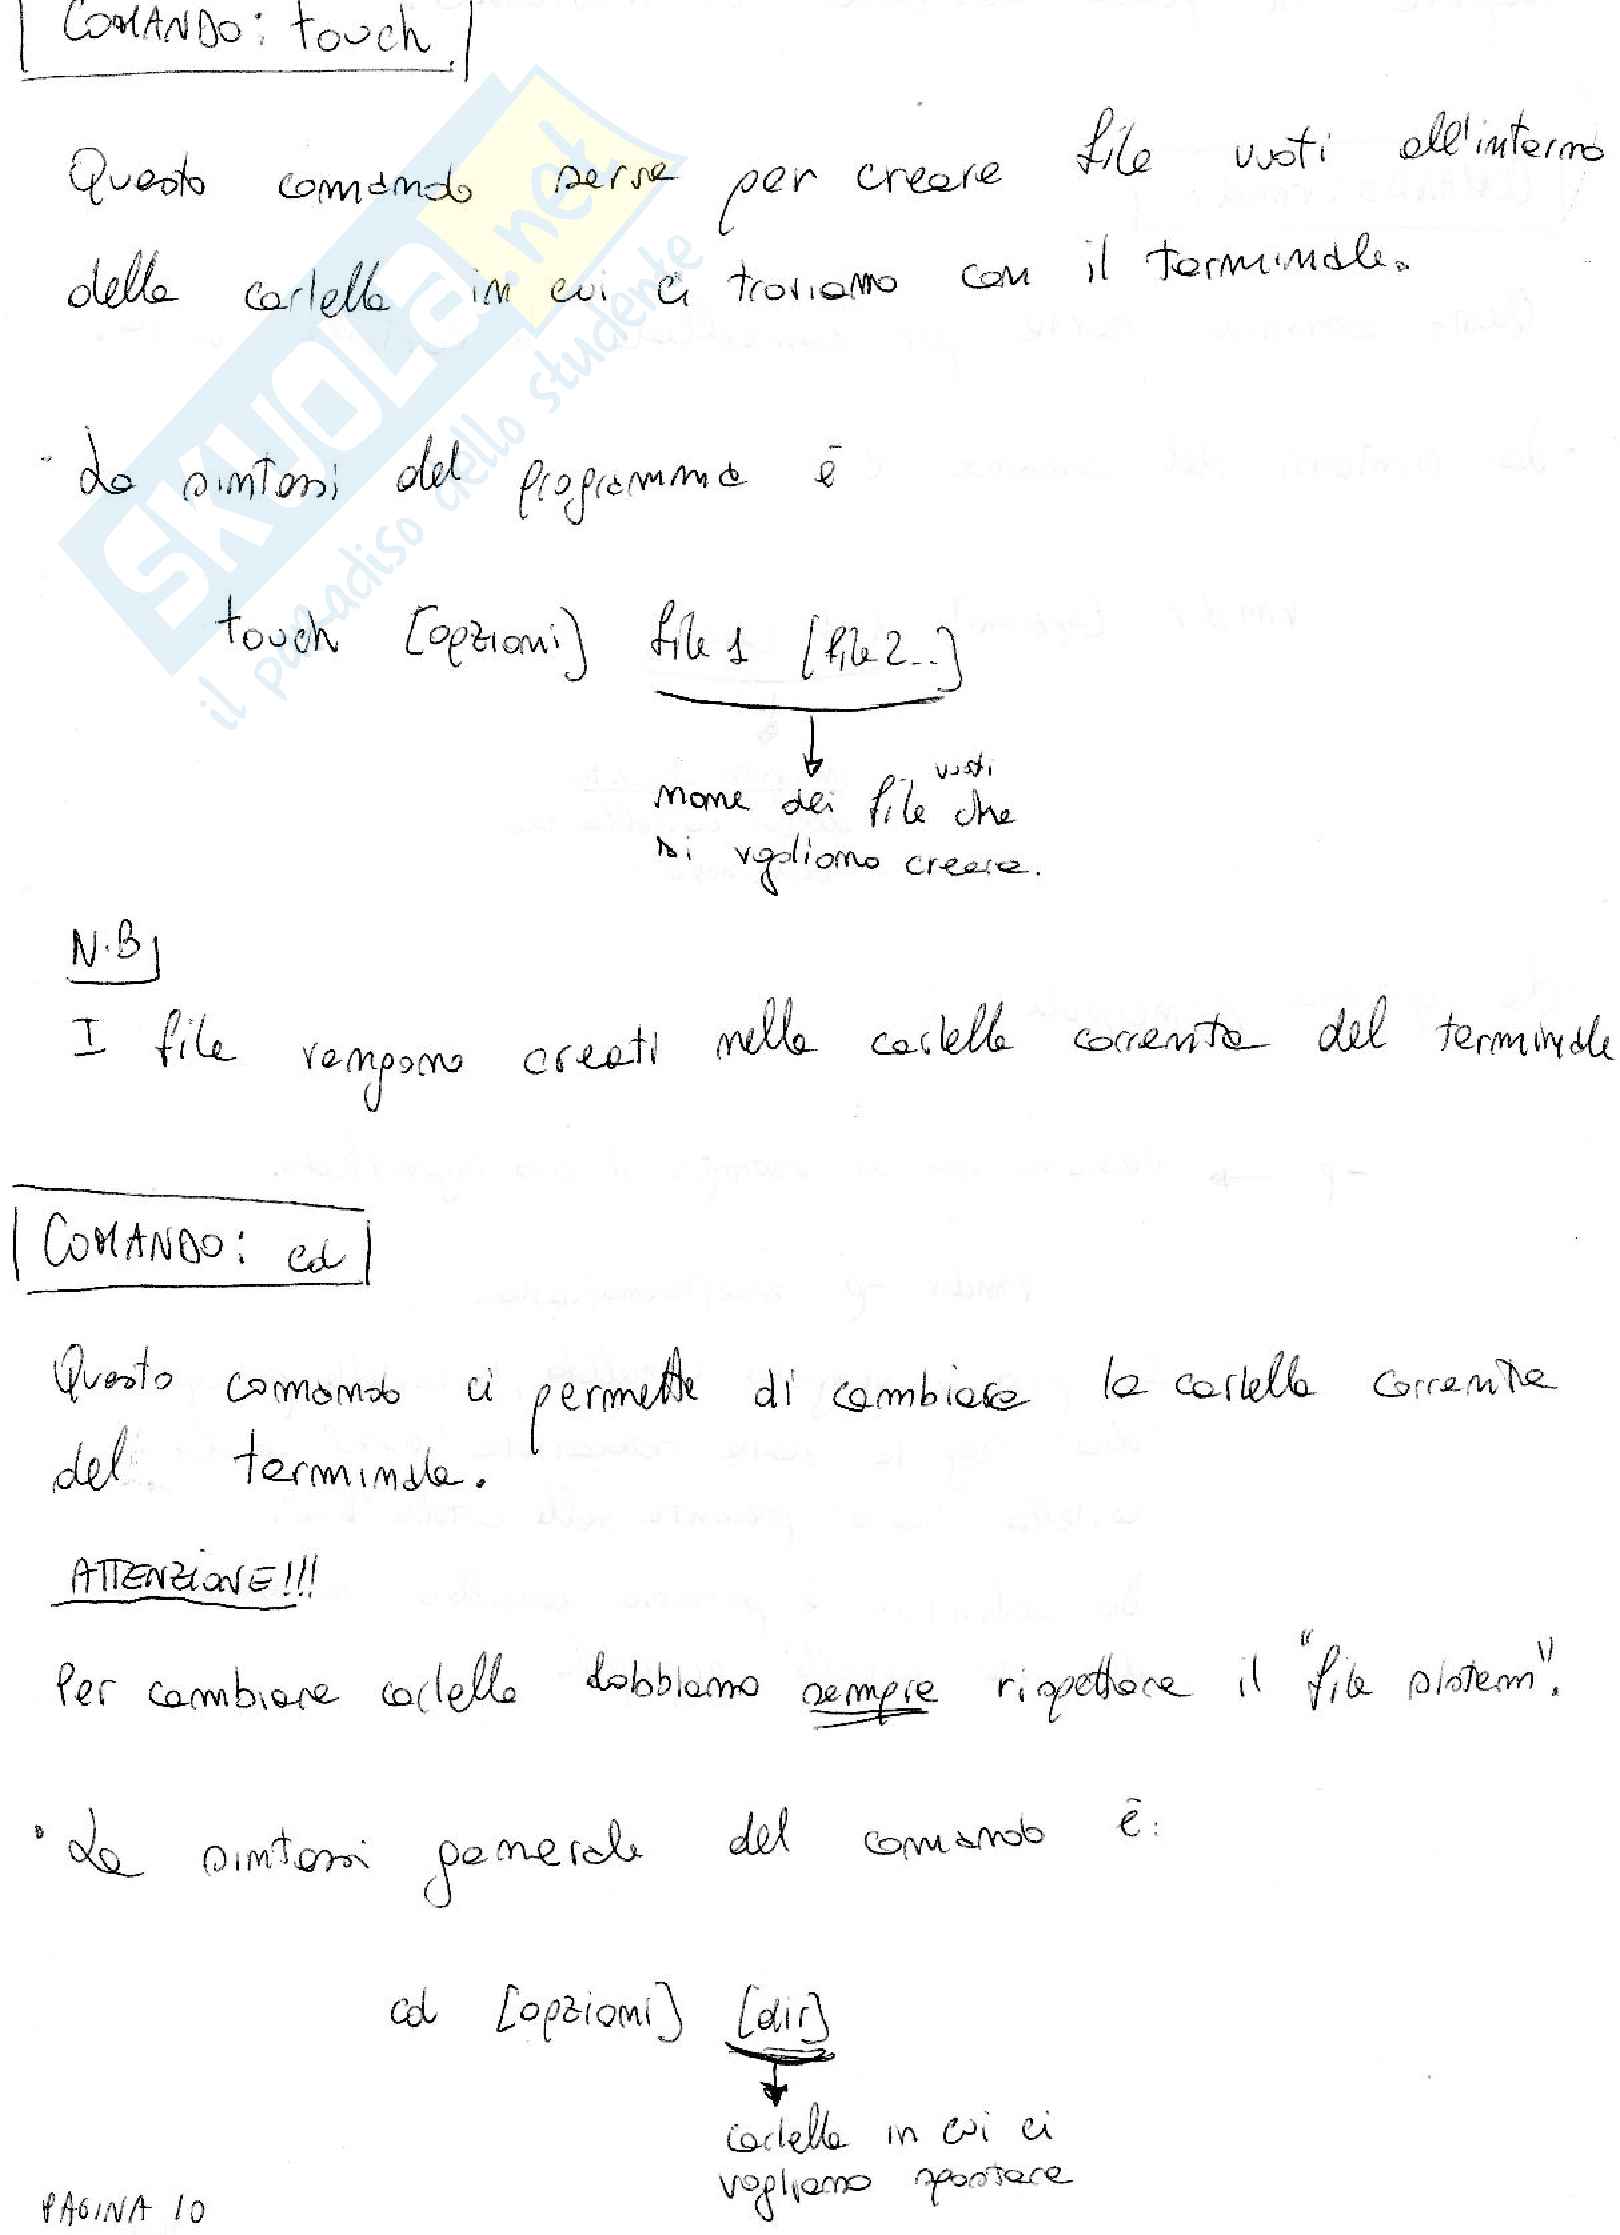 COMANDO: touch
Questo comando serve per creare file vuoti all'interno
della cartella in cui ci troviamo con il terminale.
La sintassi del programma è
touch [opzioni] file1 [file2...]
nome dei file vuoti che
si vogliono creare.
N.B
I file vengono creati nella cartella corrente del terminale
COMANDO: cd
Questo comando ci permette di cambiare la cartella corrente
del terminale.
ATTENZIONE!!!
Per cambiare cartella dobbiamo sempre rispettare il "file sistem".
La sintassi generale del comando è:
cd [opzioni] [dir]
cartella in cui ci
vogliamo spostare
PAGINA 10
SKUOLA.net
il paradiso dello studente